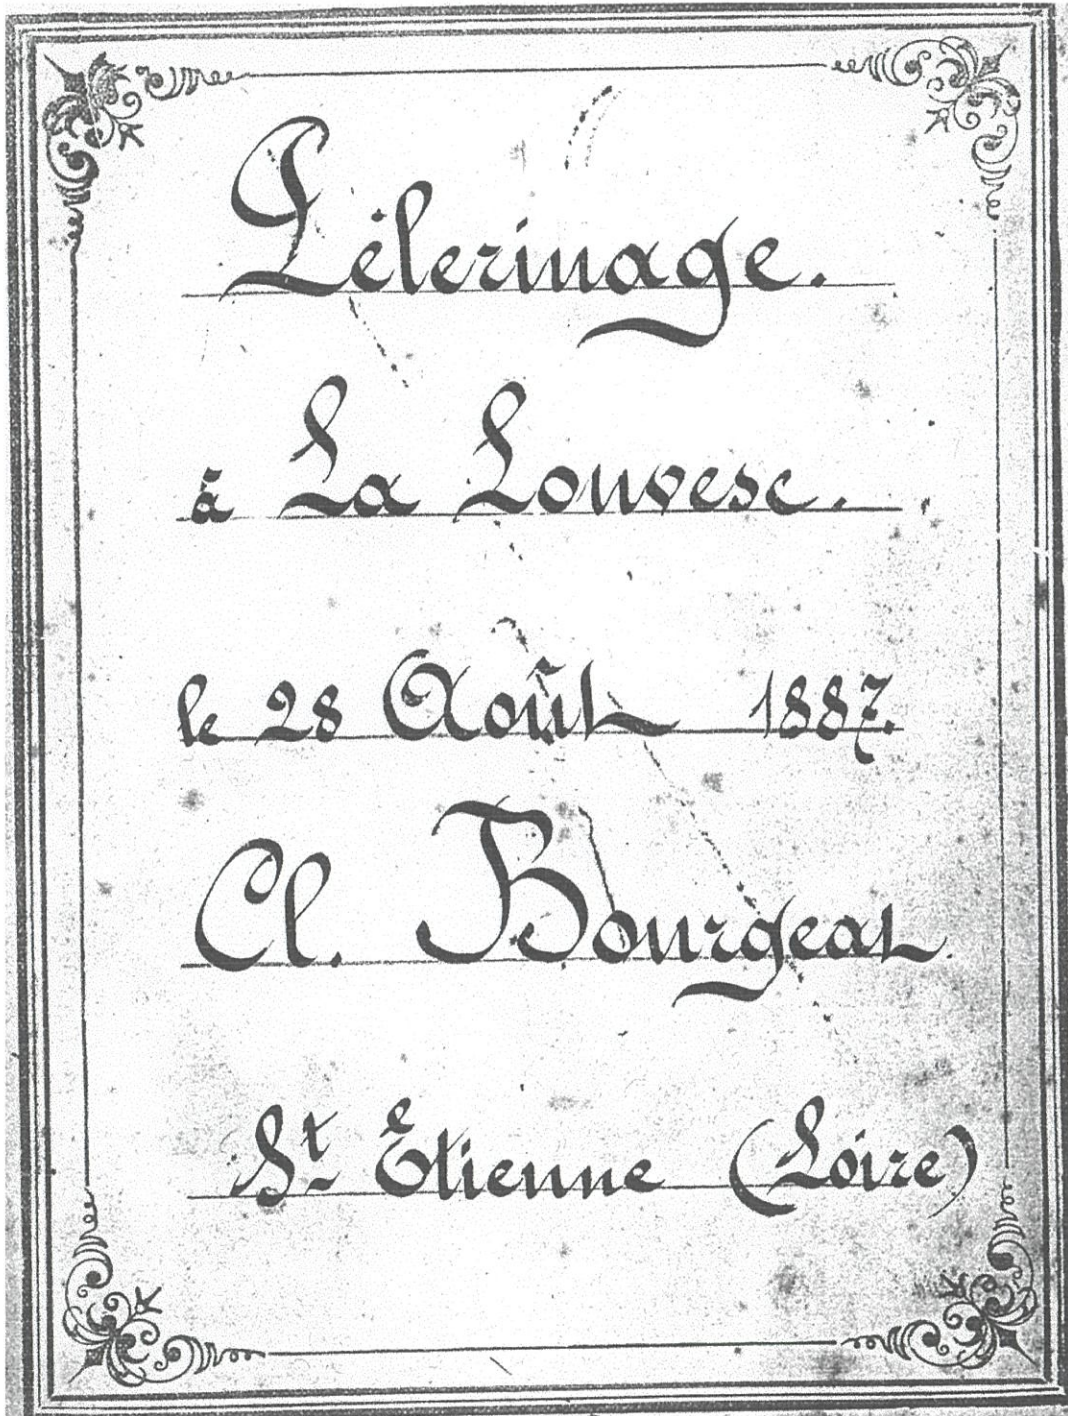 Pèlerinage.
à La Louvesc.
le 28 Août 1887.
Cl. Bourgeat
St Etienne (Loire)